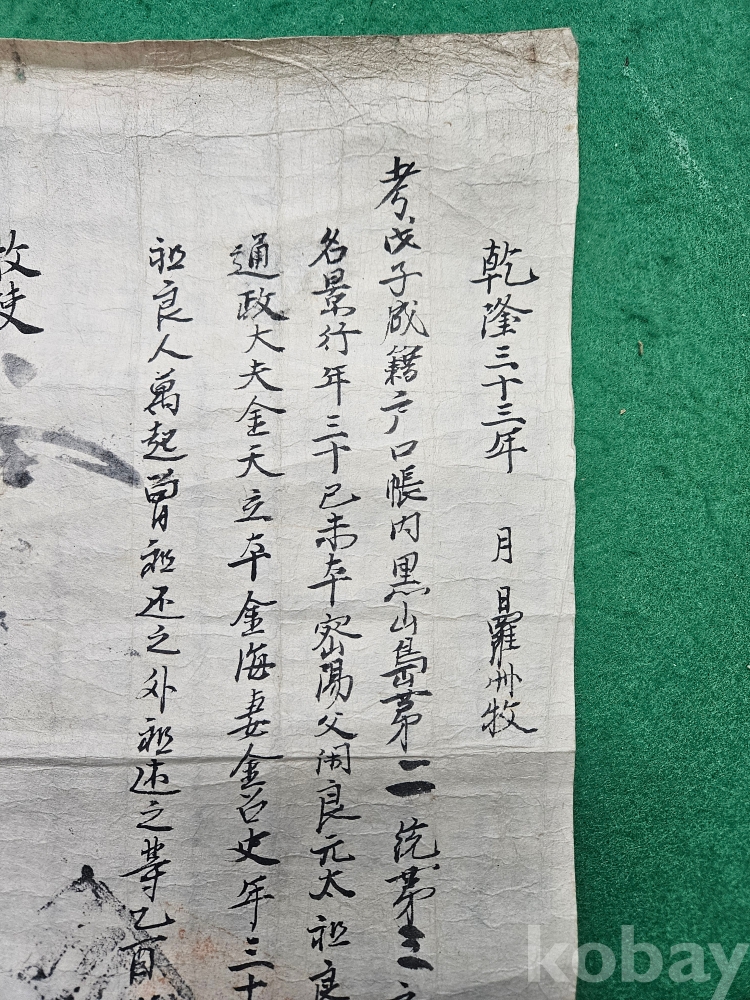 乾隆三十三年 月 日羅州牧
考戊子成籍戶口帳內黑山島第二統第三
名景行年三十己未本密陽父閑良元太祖良
通政大夫金天立本金海妻金召史年三十
祖良人萬起曾祖还之外祖述之等乙酉
牧使
kobay